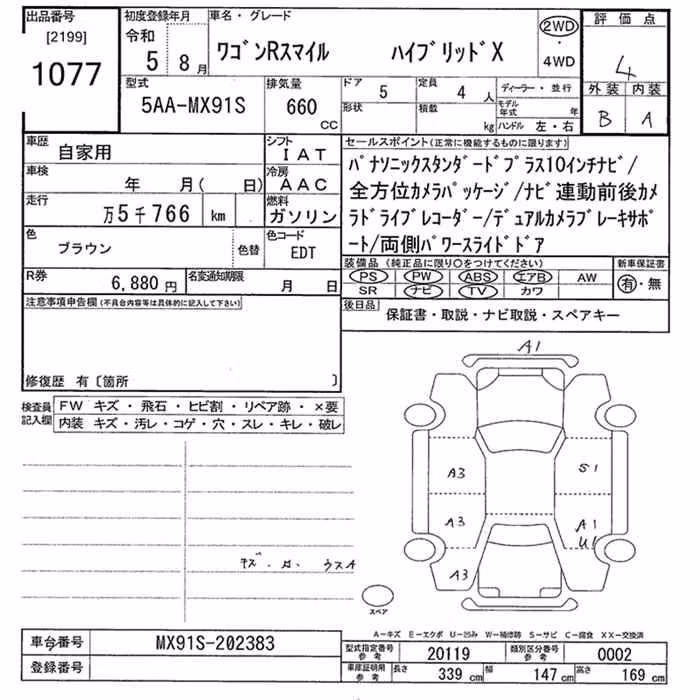 出品番号
[2199]
1077
初度登録年月
令和
5 8 月
車名・グレード
ワゴンRスマイル ハイブリッドX
2WD
・
4WD
評価点
4
外装 内装
B A
型式
5AA-MX91S
排気量
660
CC
ドア
5
定員
4 人
形状
積載
kg
ディーラー・並行
モデル年式 年
ハンドル 左・右
車歴
自家用
シフト
IAT
車検
年 月( 日)
冷房
AAC
走行
万5千766 km
燃料
ガソリン
色
ブラウン
色替
色コード
EDT
R券
6,880 円
名変通知期限
月 日
セールスポイント(正常に機能するものに限ります)
パナソニックスタンダードプラス10インチナビ/
全方位カメラパッケージ/ナビ連動前後カメ
ラドライブレコーダー/デュアルカメラブレーキサポ
ート/両側パワースライドドア
装備品(純正品に限り○をつけてください)
新車保証書
PS PW ABS エアB AW
SR ナビ TV カワ
有・無
後日品
保証書・取説・ナビ取説・スペアキー
注意事項申告欄(不具合内容等は具体的に記入して下さい)
修復歴 有〔箇所 〕
検査員
記入欄
FW キズ・飛石・ヒビ割・リペア跡・×要
内装 キズ・汚レ・コゲ・穴・スレ・キレ・破レ
A1
A3
S1
A3
A1
U1
A3
スペア
A-キズ E-エクボ U-凹み W-補修跡 S-サビ C-腐食 XX-交換済
車台番号
MX91S-202383
登録番号
型式指定番号
参考
20119
類別区分番号
参考
0002
車庫証明用
参考
長さ
339 cm
幅
147 cm
高さ
169 cm